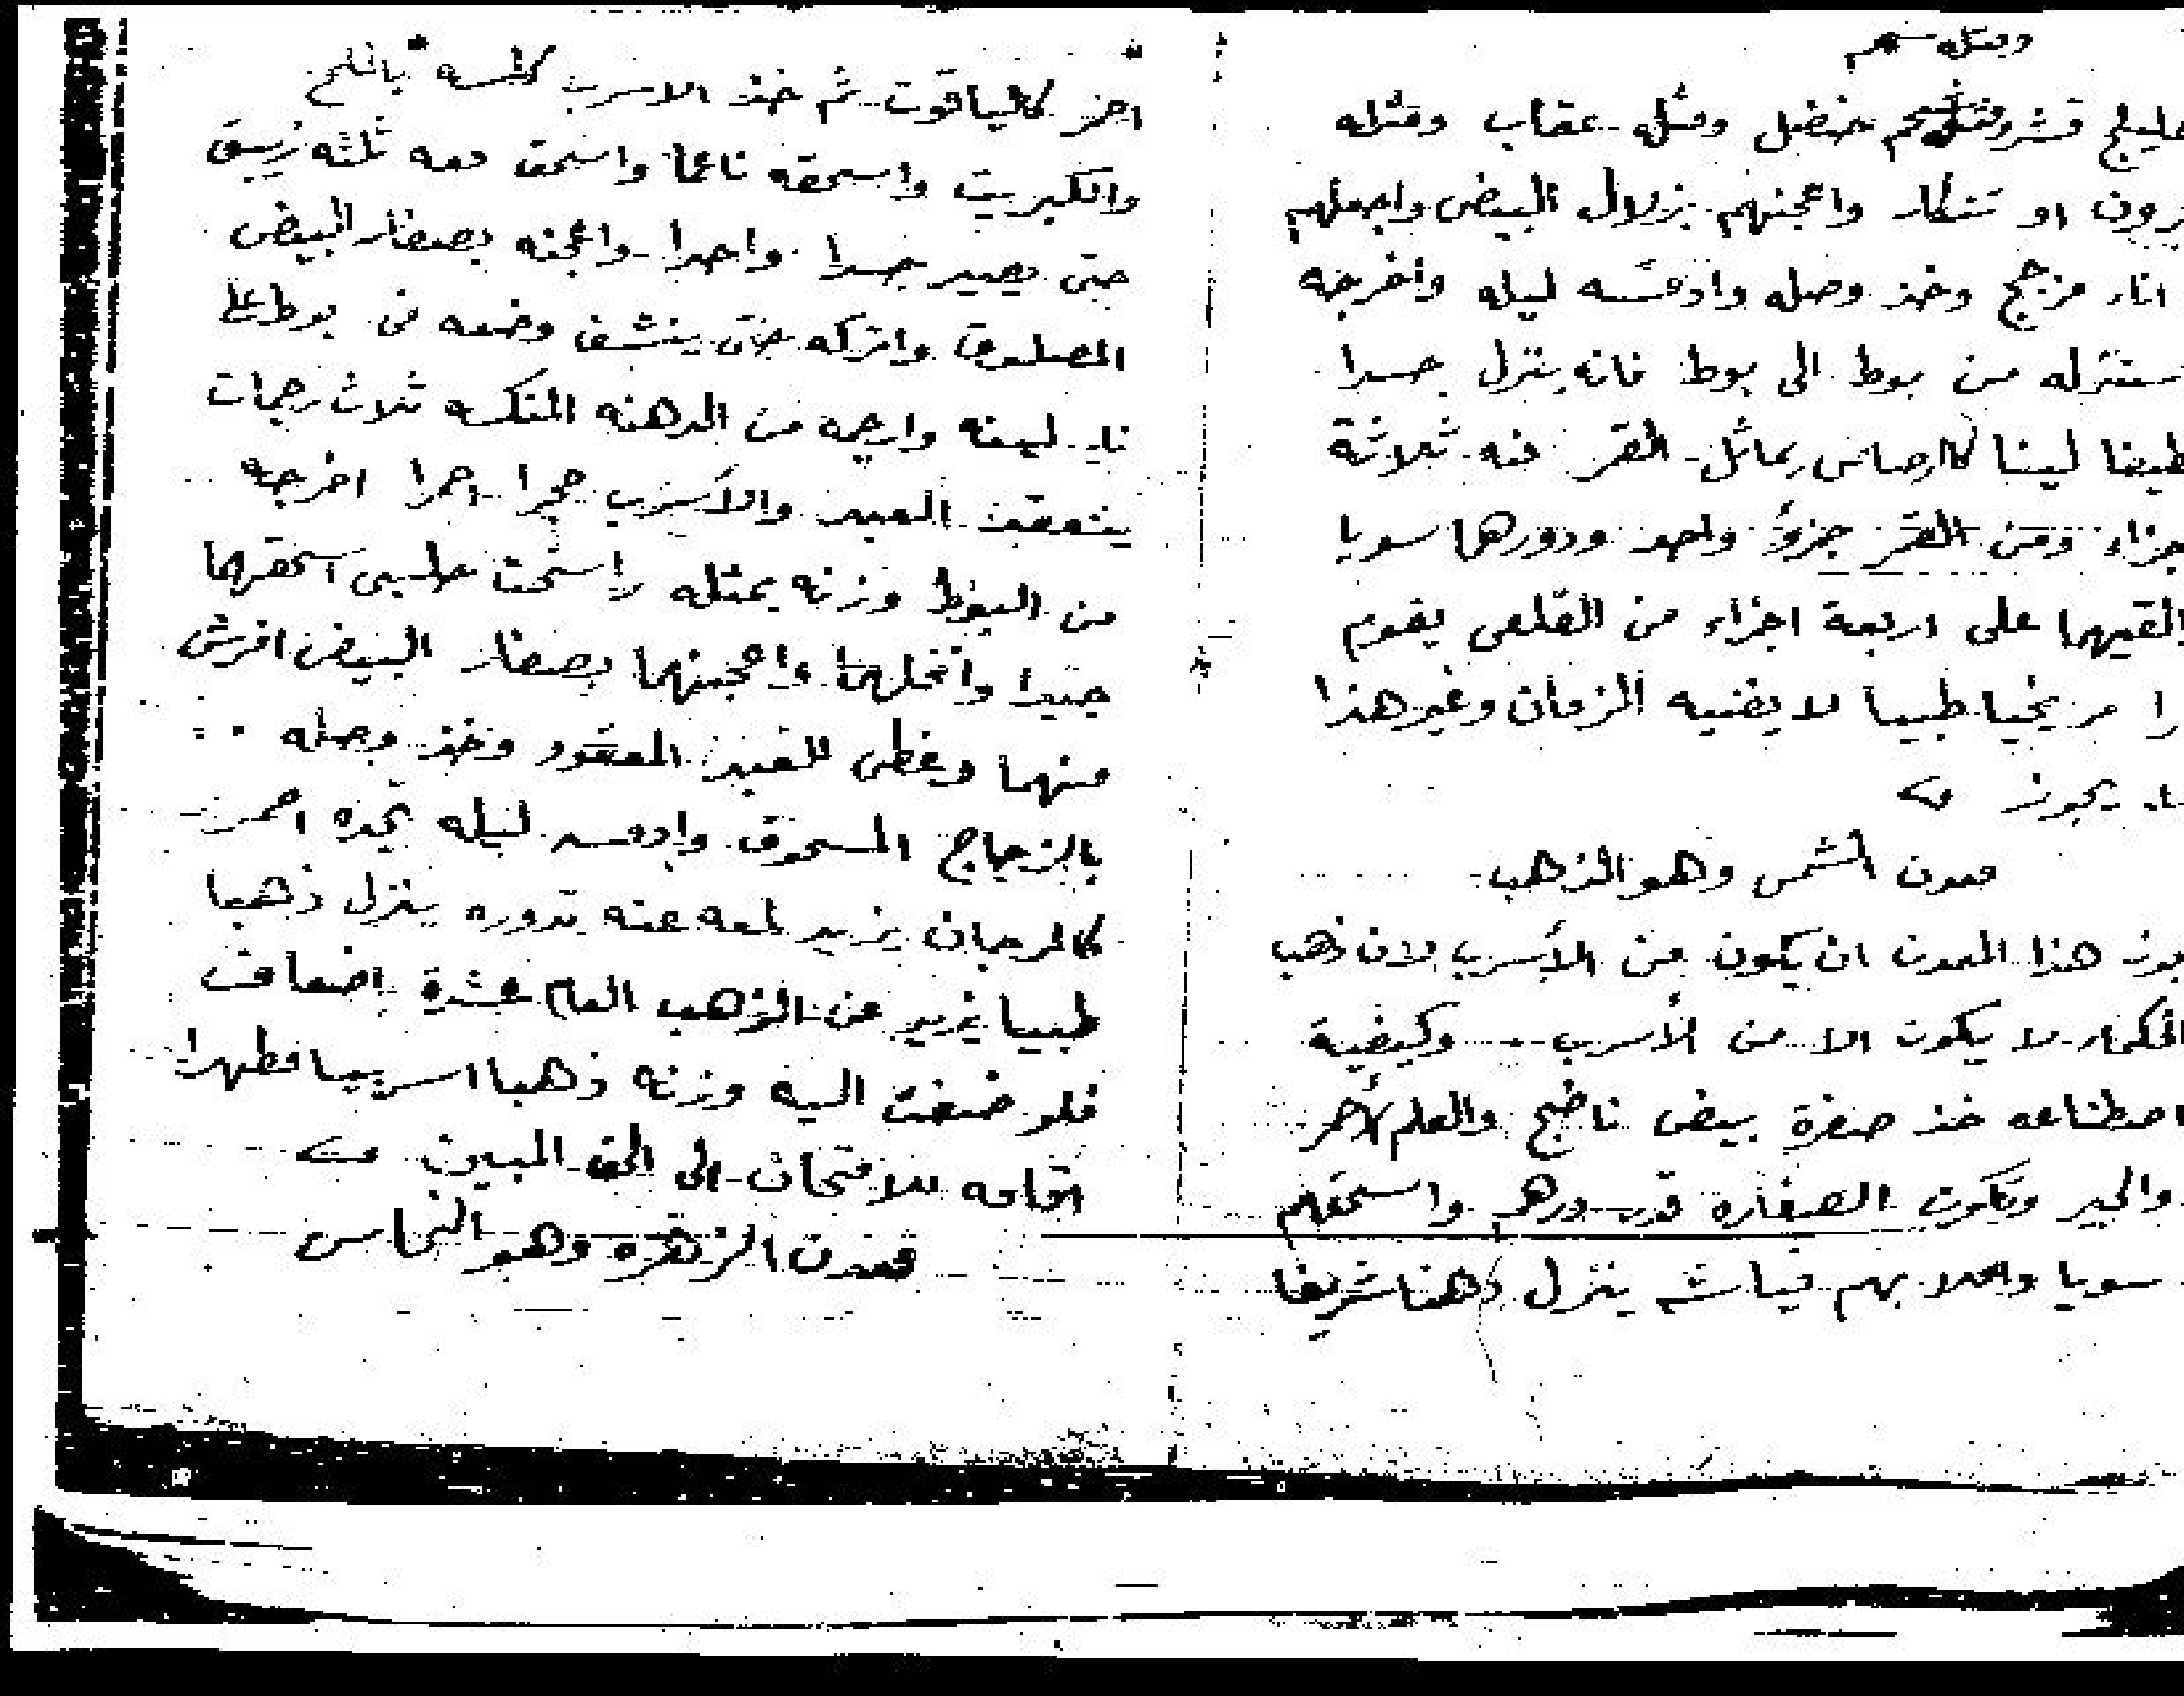 ومثله سم
هليلج قشر ومثله شحم حنضل ومثله عقاب ومثله
او تنكار واعجنهم بزلال البيض واجعلهم
اناء مزجج وخذ وصله وادمسه ليله واخرجه
ستنزله من بوط الى بوط فانه ينزل جسدا
لينا كالرصاص يماثل القمر منه ثلاثة
ومن القمر جزؤ واحد ودورهما سويا
القيهما على اربعة اجزاء من القلعى يقوم
مريخيا طيبا لا يفنيه الزمان وغير هذا
يجوز مـ
معدن الشمس وهو الذهب
هذا المعدن ان يكون من الأسرب لان ذهب
الحكماء لا يكون الا من الأسرب وكيفية
اصطناعه خذ صفرة بيض ناضج والعلم الأحمر
والجير وتكون الصفاره قدر درهم واسحقهم
سويا واملا بهم قياشه ينزل دهنا شريفا
احمر كالياقوت ثم خذ الاسرب كلسه بالملح
والكبريت واسحقه ناعما واسحق معه ثلثه زيبق
حتى يصير جسدا واحدا واعجنه بصفار البيض
المصلوق واتركه حتى ينشف وضعه في بوط على
نار لينه وارجمه من الدهنه المنكسه ثلاث رجمات
ينعقد العبد والأسرب حجرا احمرا اخرجه
من البوط وزنه بمثله راسخت اسحقهما
جيدا وانخلهما واعجنهما بصفار البيض افرش
منهما وغطى للعبد المعقود وخذ وصله
بالزجاج المسحوق وادمسه ليله تجده احمر
كالمرجان يزيد لمعه عنه تدوره ينزل ذهبا
طيبا يزيد عن الذهب العام عشرة اضعاف
فلو ضفت اليه وزنه ذهبا اسربيا مطهرا
اقامه للامتحان الى الحق المبين مـ
معدن الزهره وهو النحاس